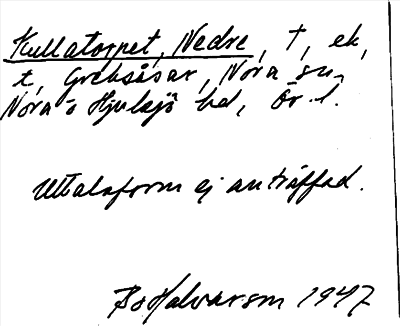 Kullatorpet, Nedre, †, ek,
t, Grebsåsar, Nora sn,
Nora o Hjulsjö bd, Ör. l.
Uttalsform ej anträffad.
Bo Halvarson 1947